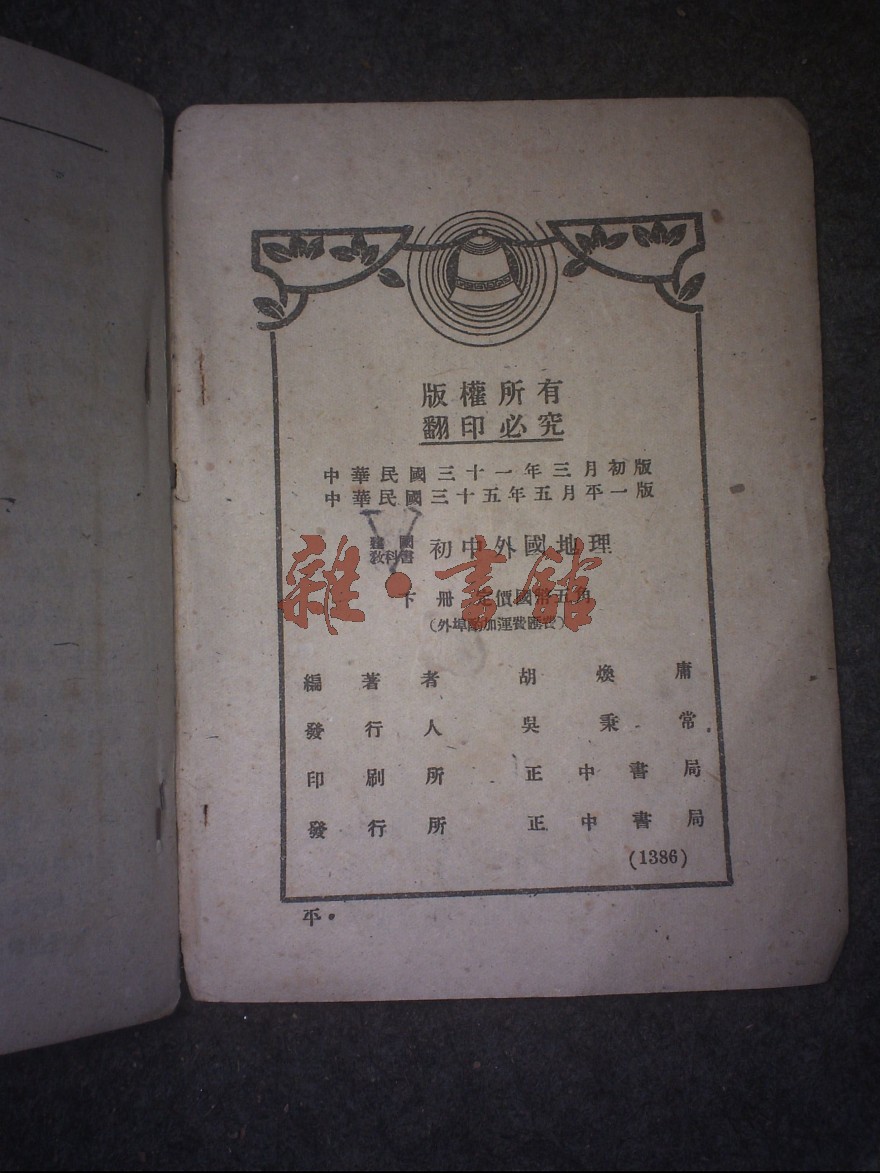 版權所有
翻印必究
中華民國三十一年三月初版
中華民國三十五年五月平一版
教科書 初中外國地理
下冊 定價國幣五角
(外埠酌加運費匯費)
編著者 胡煥庸
發行人 吳秉常
印刷所 正中書局
發行所 正中書局
(1386)
平.
雜·書館